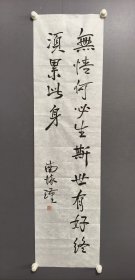 無情何必生斯世有好終
須累此身
南懷瑾